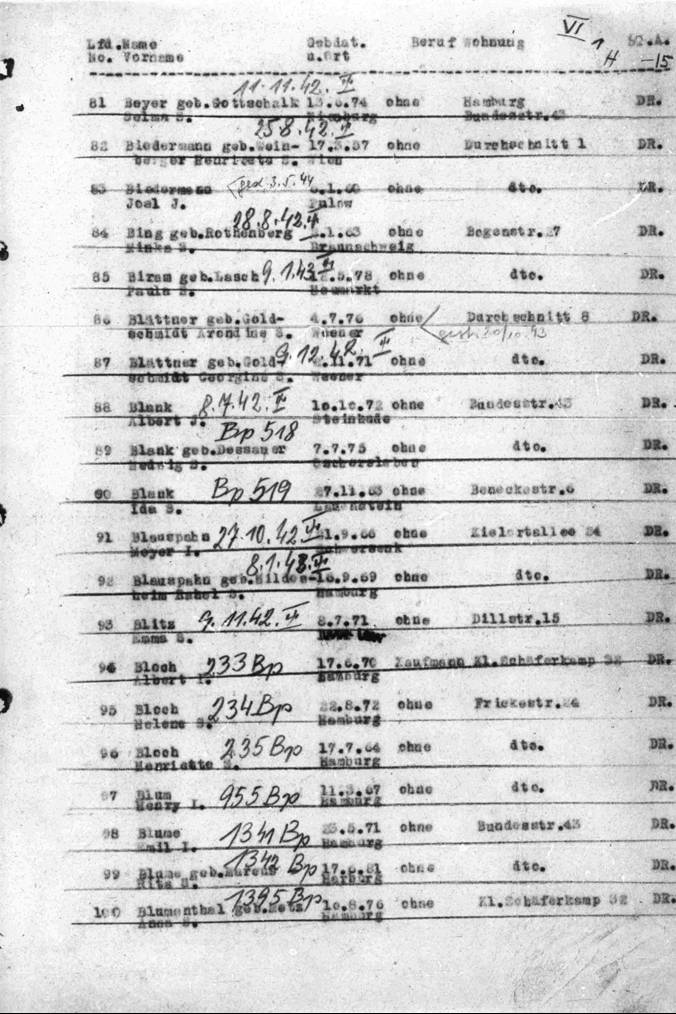 VI 1
H -15
Lfd.Name Gebdat. Beruf Wohnung St.A.
No. Vorname u.Ort
11.11.42. II
81 Beyer geb.Gottschalk 13.6.74 ohne Hamburg DR.
Selma S. Bundesstr.43
25.8.42. II
82 Biedermann geb.Wein- 17.3.57 ohne Durchschnitt 1 DR.
berger Henriette S. Wien
83 Biedermann gest. 3.5.44 ohne dto. DR.
Joel J.
28.8.42. II
84 Bing geb.Rothenberg ohne Bogenstr.27 DR.
Minka S. Braunschweig
85 Biram geb.Lasch 9.1.43 II .5.78 ohne dto. DR.
Paula S. Neumarkt
86 Blättner geb.Gold- 4.7.76 ohne Durchschnitt 8 DR.
schmidt S. Weener gest. 20/10.43
9.12.42. II
87 Blättner geb.Gold- .11.71 ohne dto. DR.
schmidt Georgine S. Weener
88 Blank 8.7.42. II 10.10.72 ohne Bundesstr.43 DR.
Albert J. Steinhude
Bp 518
89 Blank geb.Dessauer 7.7.75 ohne dto. DR.
Hedwig S. Oschersleben
90 Blank Bp 519 27.11.63 ohne Beneckestr.6 DR.
Ida S. Lauenstein
91 Blauspahn 27.10.42 II .9.66 ohne Kielortallee 24 DR.
Meyer I. Schwersenk
8.1.43. II
92 Blauspahn geb.Hildes- 16.9.69 ohne dto. DR.
heim S. Hamburg
93 Blitz 9.11.42. II 8.7.71 ohne Dillstr.15 DR.
Emma S.
94 Bloch 233 Bp 17.6.70 Kaufmann Kl.Schäferkamp 32 DR.
Albert I. Hamburg
95 Bloch 234 Bp 22.8.72 ohne Frickestr.24 DR.
Helene S. Hamburg
96 Bloch 235 Bp 17.7.64 ohne dto. DR.
Henriette S. Hamburg
97 Blum 955 Bp 11.3.67 ohne dto. DR.
Henry I. Hamburg
98 Blume 1341 Bp 23.5.71 ohne Bundesstr.43 DR.
Emil I. Hamburg
1342 Bp
99 Blume geb.Marcus 17.6.81 ohne dto. DR.
Rita S. Harburg
1395 Bp
100 Blumenthal geb.Metz 10.8.76 ohne Kl.Schäferkamp 32 DR.
Anna S. Hamburg